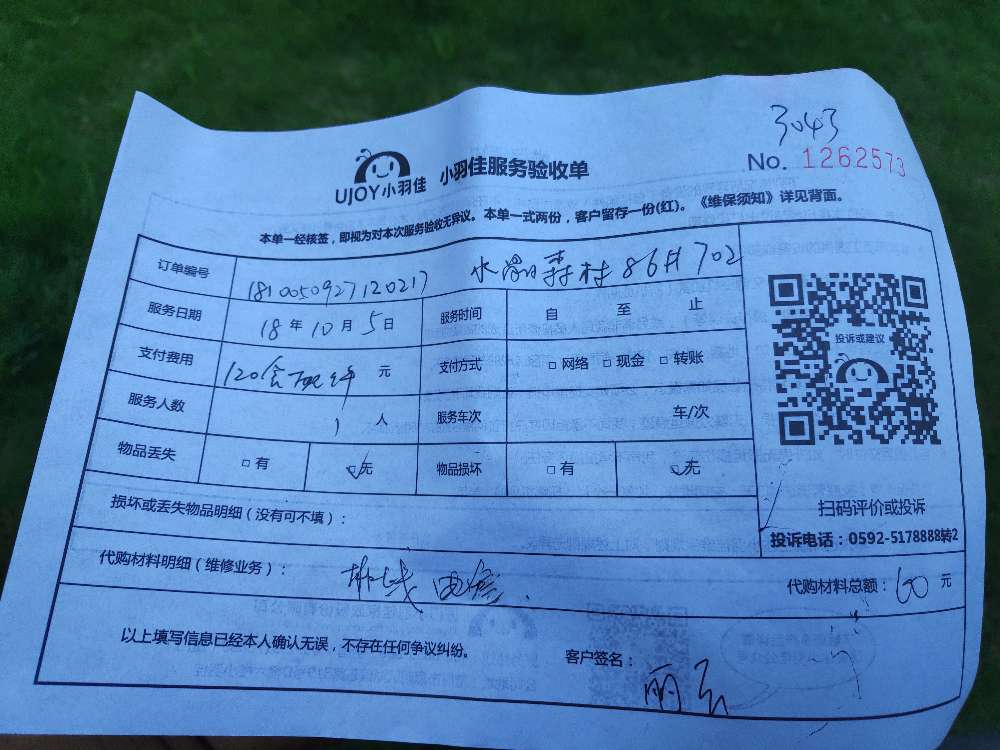 3043
UJOY小羽佳 小羽佳服务验收单
No. 1262573
本单一经核签，即视为对本次服务验收无异议。本单一式两份，客户留存一份(红)。《维保须知》详见背面。
订单编号 1810050927120217 86# 702
服务日期 18年10月5日 服务时间 自 至 止
支付费用 120含配件 元 支付方式 □网络 □现金 □转账
服务人数 1 人 服务车次 车/次
物品丢失 □有 ☑无 物品损坏 □有 ☑无
损坏或丢失物品明细（没有可不填）：
代购材料明细（维修业务）： 代购材料总额：60元
以上填写信息已经本人确认无误，不存在任何争议纠纷。
客户签名：
投诉或建议
扫码评价或投诉
投诉电话：0592-5178888转2